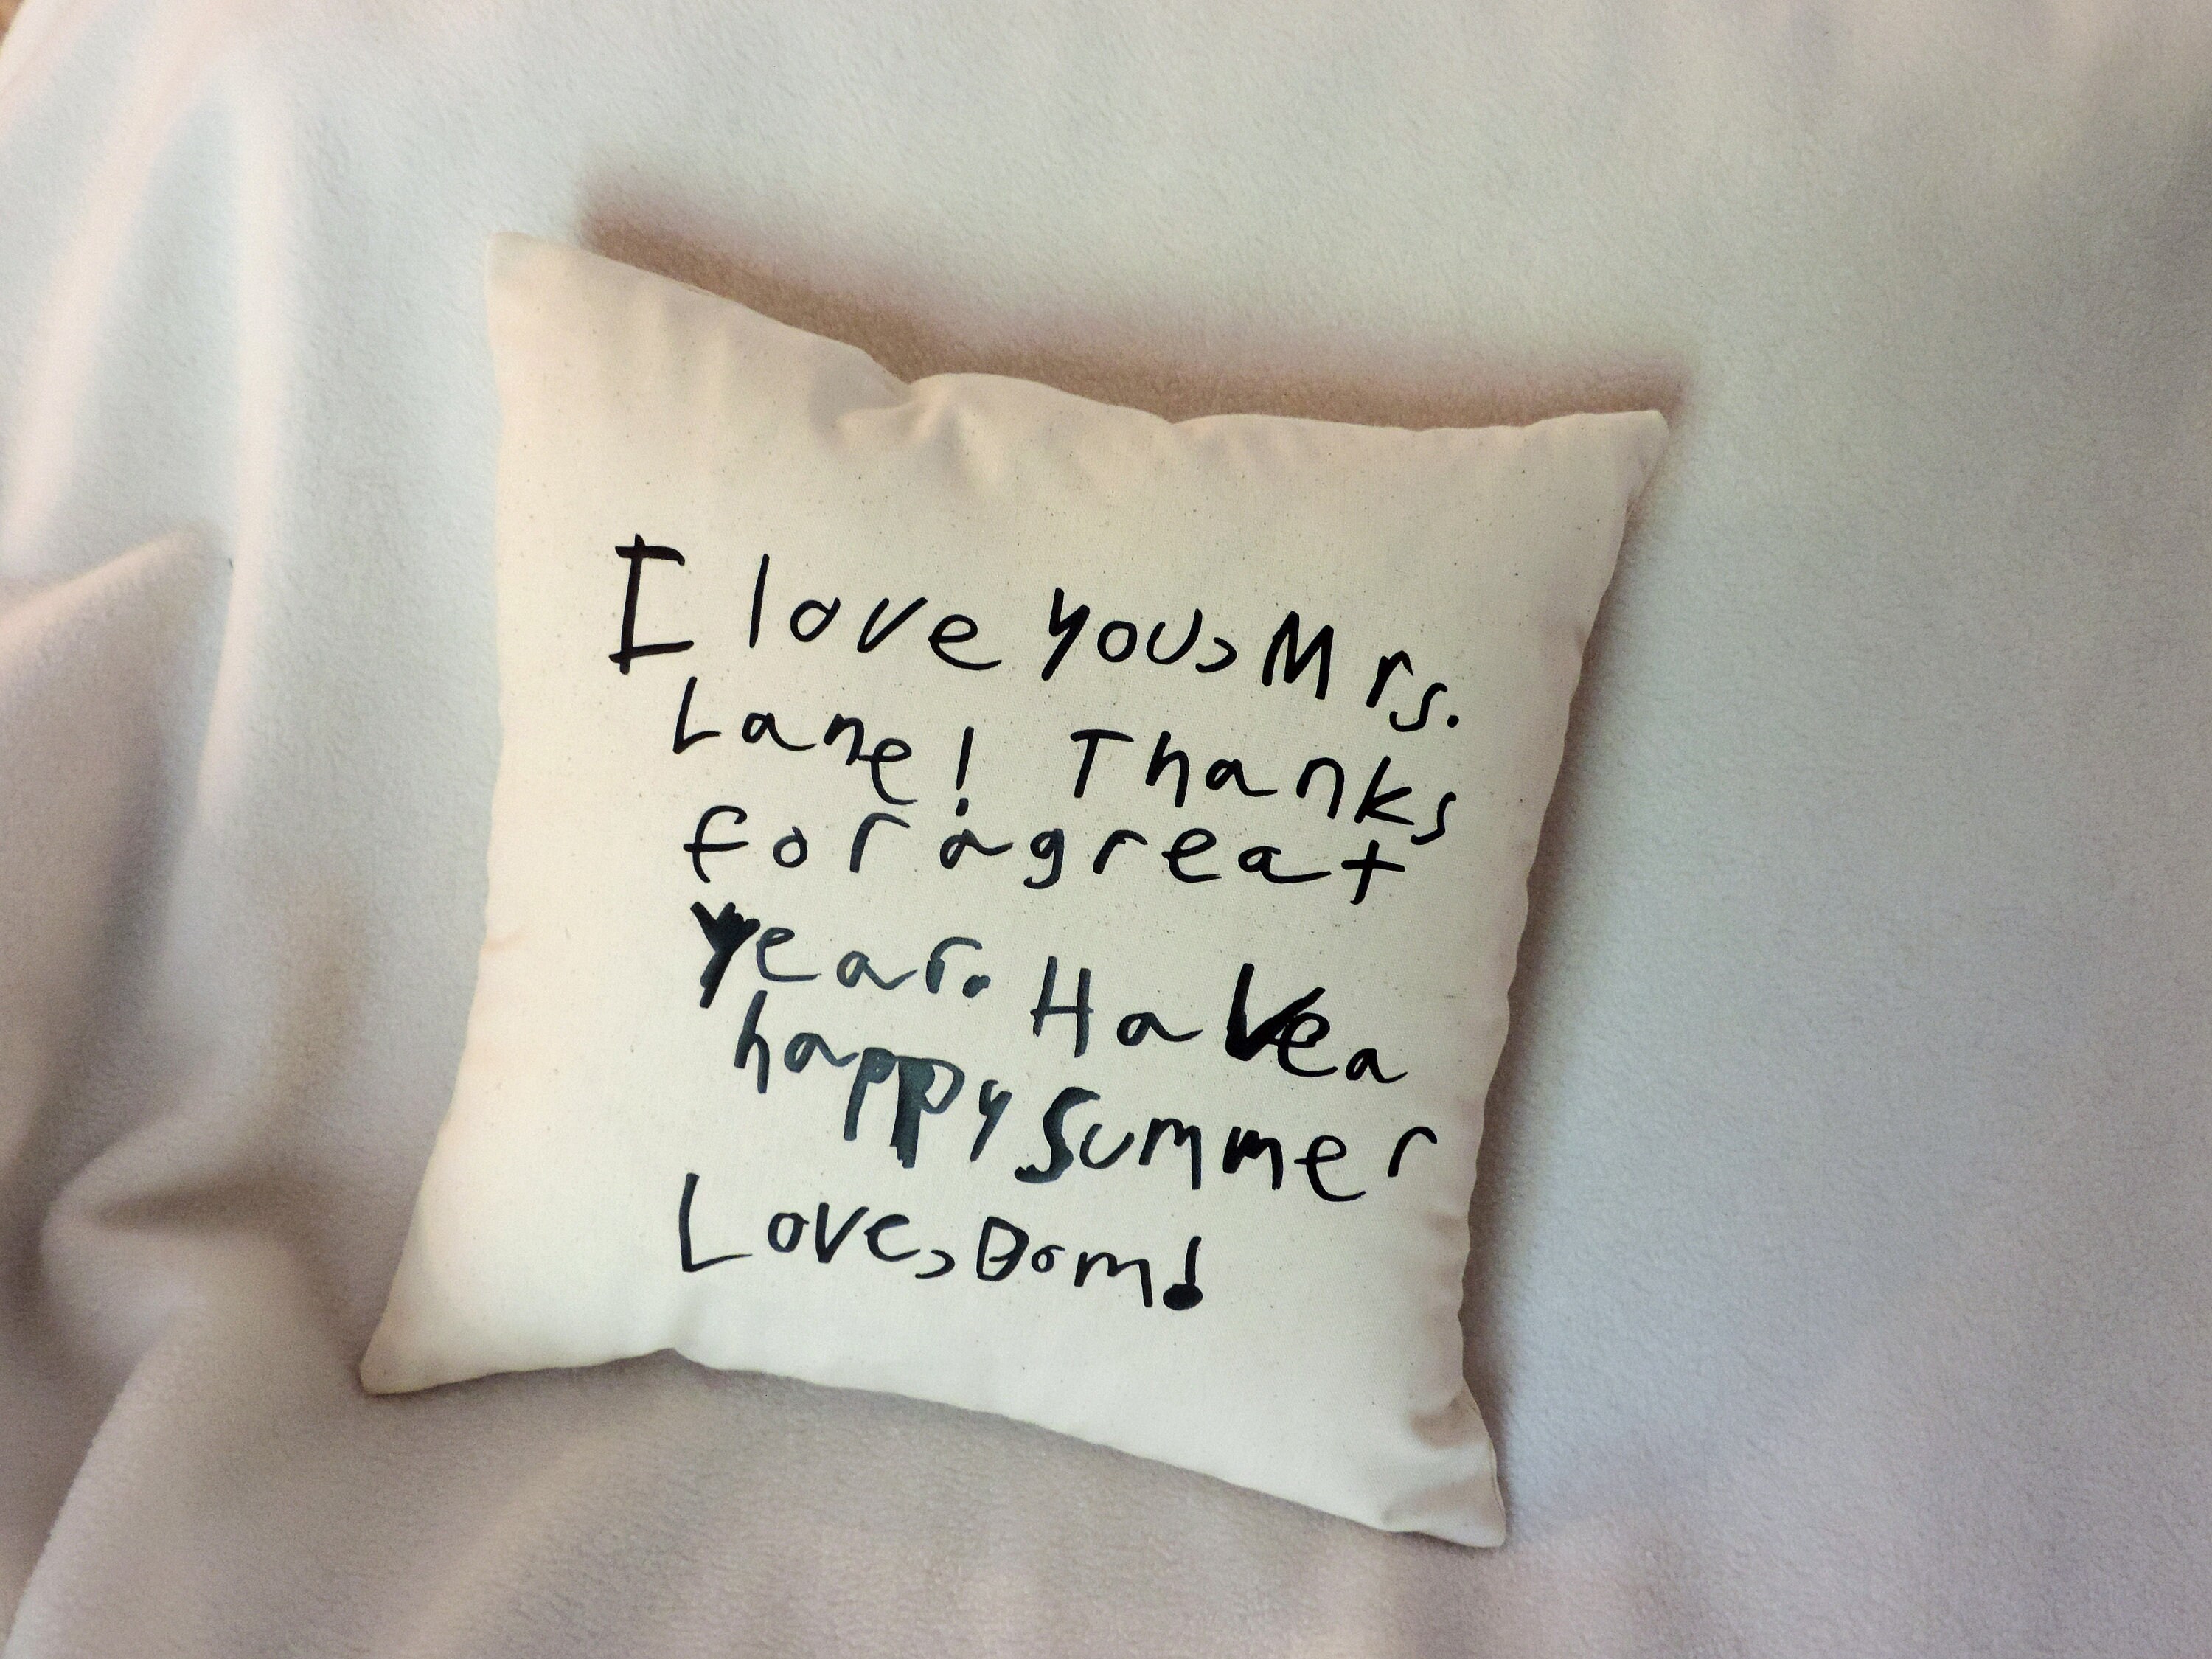 I love you, Mrs.
Lane! Thanks
for a great
year. Have a
happy summer
Love, Dom!